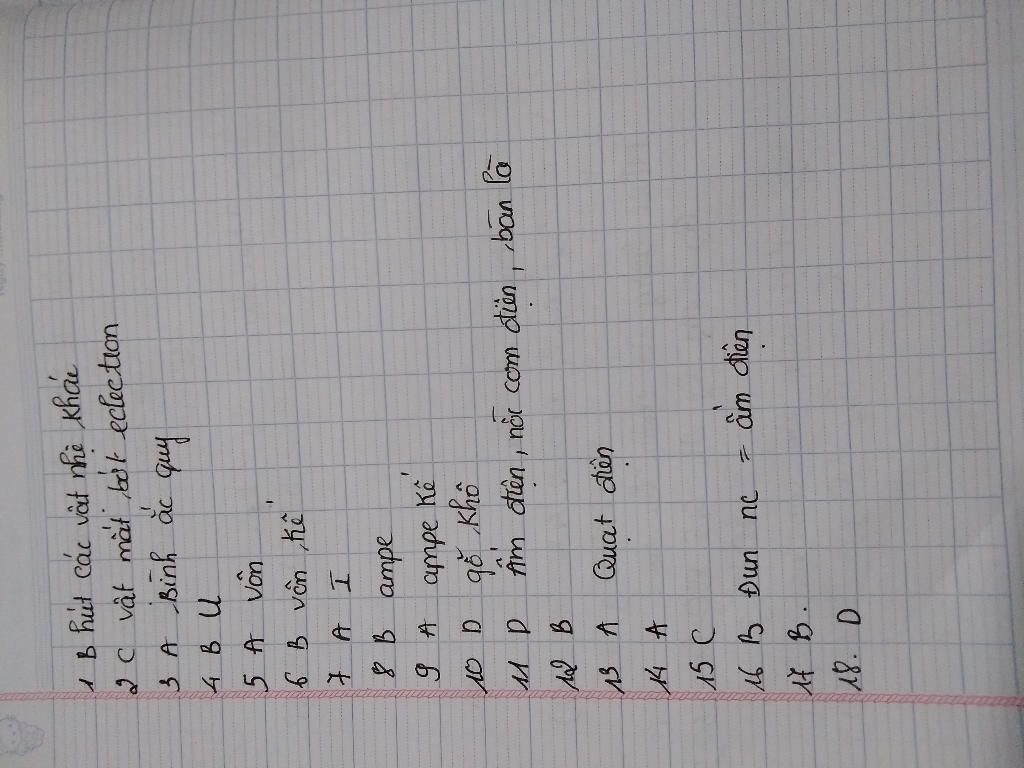 1 B hút các vật nhẹ khác
2 C vật mất bớt eclection
3 A Bình ắc quy
4 B U
5 A vôn
6 B vôn kế
7 A I
8 B ampe
9 A ampe kế
10 D gỗ khô
11 D Ấm điện, nồi cơm điện, bàn là
12 B
13 A Quạt điện
14 A
15 C
16 B Đun nc = ấm điện
17 B.
18. D